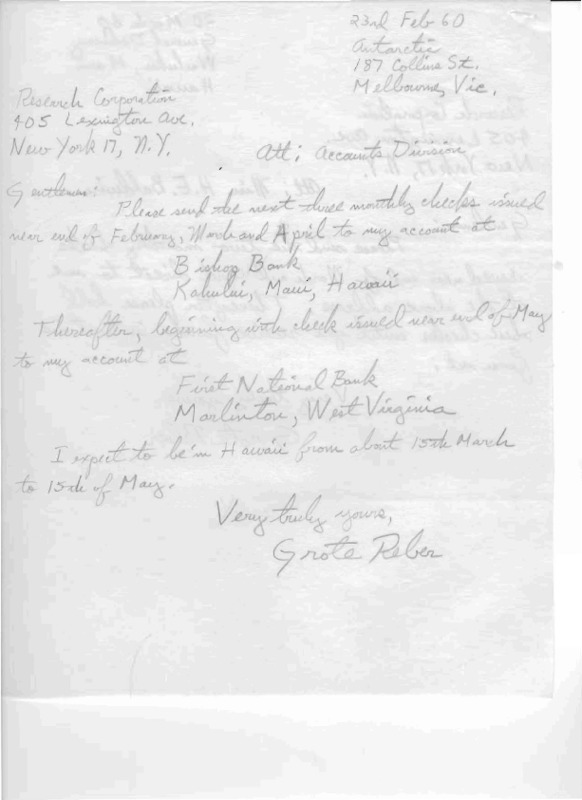 23rd Feb 60
Antarctic
187 Collins St.
Melbourne, Vic.
Research Corporation
405 Lexington Ave.
New York 17, N.Y.
Att; Accounts Division
Gentlemen:
Please send the next three monthly checks issued
near end of February, March and April to my account at
Bishop Bank
Kahului, Maui, Hawaii
Thereafter, beginning with check issued near end of May
to my account at
First National Bank
Marlinton, West Virginia
I expect to be in Hawaii from about 15th March
to 15th of May.
Very truly yours,
Grote Reber